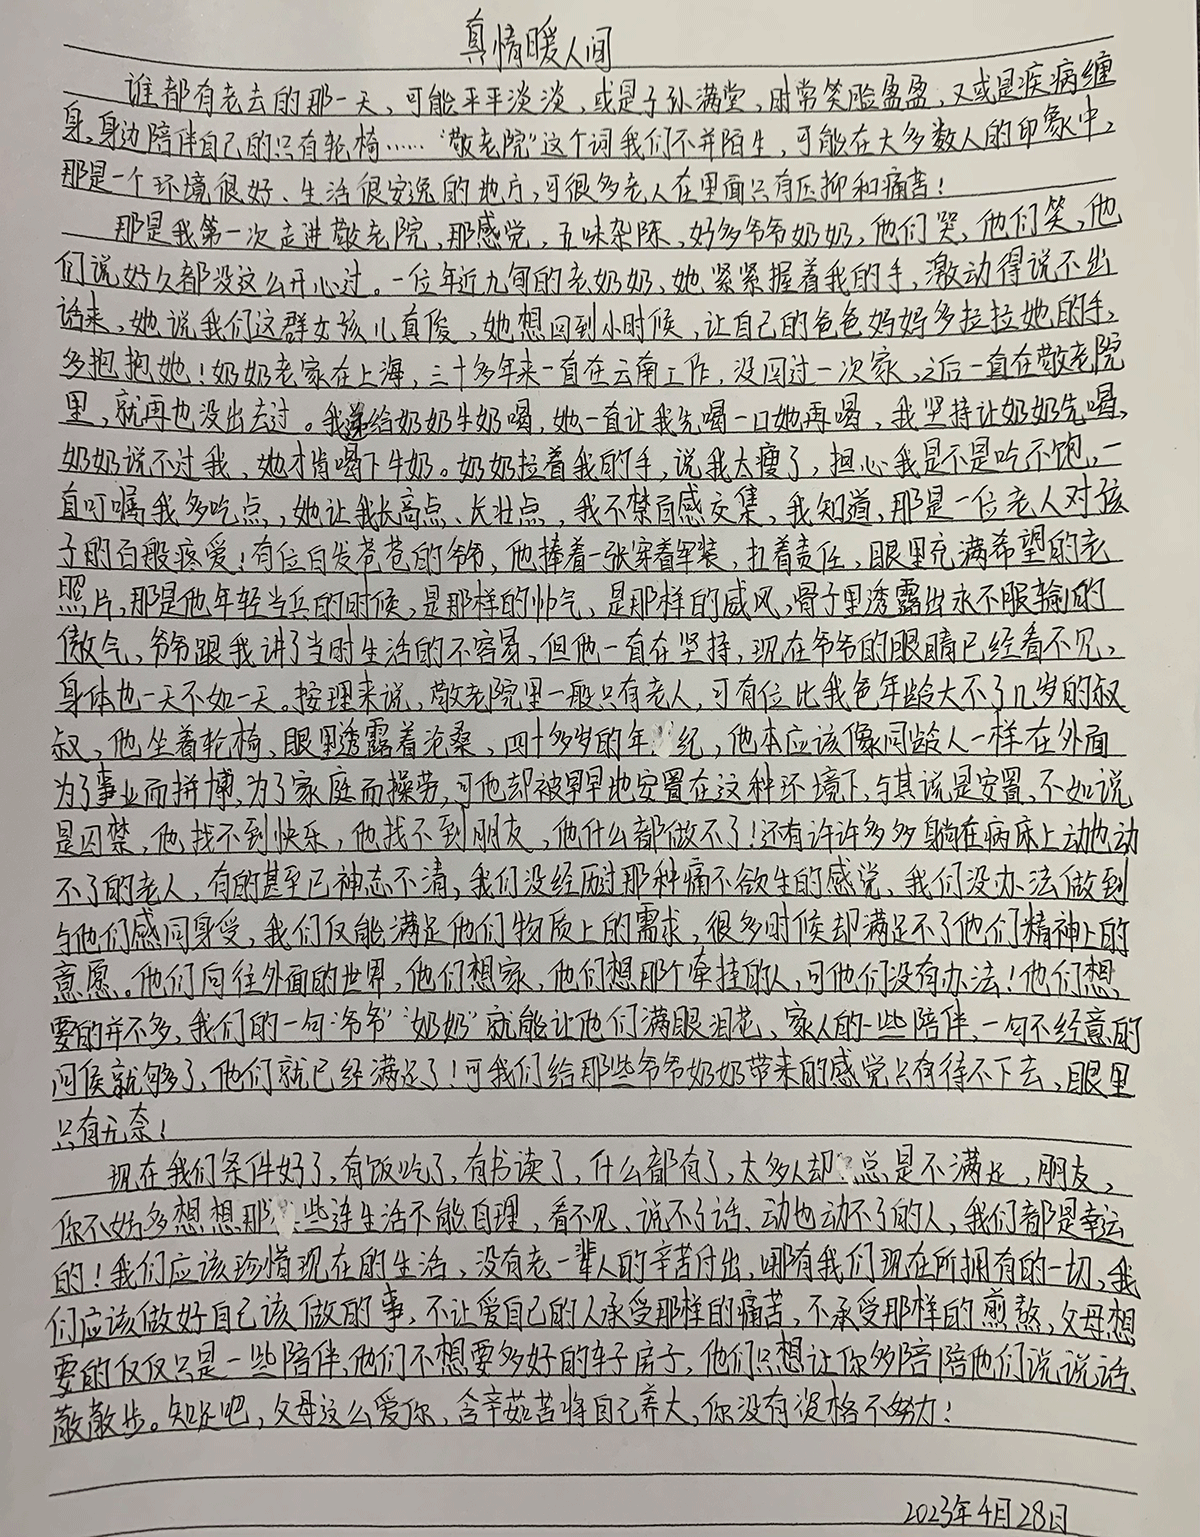 真情暖人间
谁都有老去的那一天，可能平平淡淡，或是子孙满堂，时常笑脸盈盈，又或是疾病缠
身，身边陪伴自己的只有轮椅……“敬老院”这个词我们不并陌生，可能在大多数人的印象中，
那是一个环境很好、生活很安逸的地方，可很多老人在里面只有压抑和痛苦！
那是我第一次走进敬老院，那感觉，五味杂陈，好多爷爷奶奶，他们哭，他们笑，他
们说好久都没这么开心过。一位年近九旬的老奶奶，她紧紧握着我的手，激动得说不出
话来，她说我们这群女孩儿真俊，她想回到小时候，让自己的爸爸妈妈多拉拉她的手，
多抱抱她！奶奶老家在上海，三十多年来一直在云南工作，没回过一次家，之后一直在敬老院
里，就再也没出去过。我递给奶奶牛奶喝，她一直让我先喝一口她再喝，我坚持让奶奶先喝，
奶奶说不过我，她才肯喝下牛奶。奶奶拉着我的手，说我太瘦了，担心我是不是吃不饱，一
直叮嘱我多吃点，她让我长高点、长壮点，我不禁百感交集，我知道，那是一位老人对孩
子的百般疼爱！有位白发苍苍的爷爷，他捧着一张穿着军装，扛着责任，眼里充满希望的老
照片，那是他年轻当兵的时候，是那样的帅气，是那样的威风，骨子里透露出永不服输的
傲气，爷爷跟我讲了当时生活的不容易，但他一直在坚持，现在爷爷的眼睛已经看不见，
身体也一天不如一天。按理来说，敬老院里一般只有老人，可有位比我爸年龄大不了几岁的叔
叔，他坐着轮椅，眼里透露着沧桑，四十多岁的年纪，他本应该像同龄人一样在外面
为了事业而拼博，为了家庭而操劳，可他却被早早地安置在这种环境下，与其说是安置，不如说
是囚禁，他找不到快乐，他找不到朋友，他什么都做不了！还有许许多多躺在病床上动也动
不了的老人，有的甚至已神志不清，我们没经历过那种痛不欲生的感觉，我们没办法做到
与他们感同身受，我们仅能满足他们物质上的需求，很多时候却满足不了他们精神上的
意愿。他们向往外面的世界，他们想家，他们想那个牵挂的人，可他们没有办法！他们想
要的并不多，我们的一句“爷爷”“奶奶”就能让他们满眼泪花，家人的一些陪伴，一句不经意的
问候就够了，他们就已经满足了！可我们给那些爷爷奶奶带来的感觉只有待不下去，眼里
只有无奈！
现在我们条件好了，有饭吃了，有书读了，什么都有了，太多人却总是不满足，朋友，
你不妨多想想那些连生活不能自理，看不见、说不了话、动也动不了的人，我们都是幸运
的！我们应该珍惜现在的生活，没有老一辈人的辛苦付出，哪有我们现在所拥有的一切，我
们应该做好自己该做的事，不让爱自己的人承受那样的痛苦，不承受那样的煎熬，父母想
要的仅仅只是一些陪伴，他们不想要多好的车子房子，他们只想让你多陪陪他们说说话、
散散步。知足吧，父母这么爱你，含辛茹苦将自己养大，你没有资格不努力！
2023年4月28日